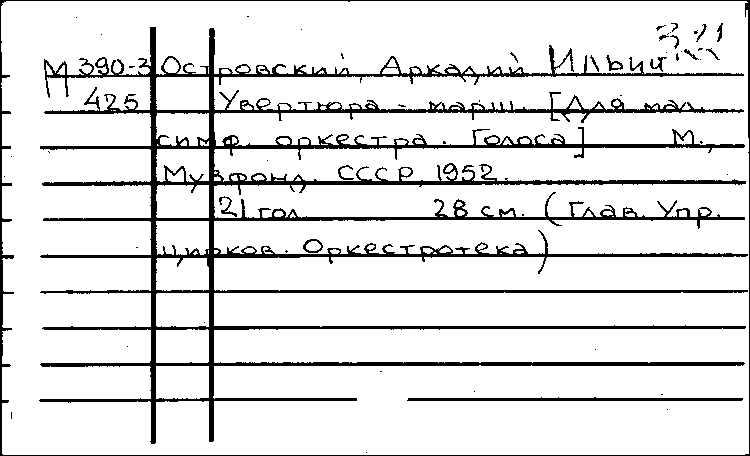 М 390-3 Островский, Аркадий Ильич
425 Увертюра - марш. [Для мал.
симф. оркестра. Голоса] М.,
Музфонд. СССР, 1952.
21 гол. 28 см. (Глав. Упр.
цирков. Оркестротека)